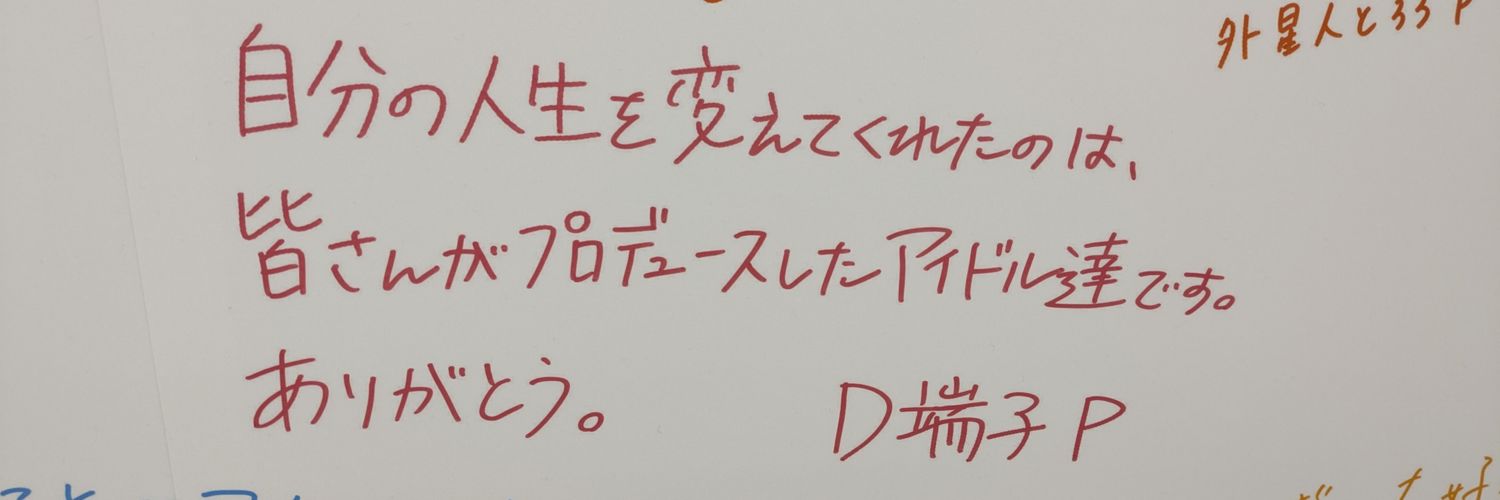 外星人とろろP
自分の人生を変えてくれたのは、
皆さんがプロデュースしたアイドル達です。
ありがとう。
D端子P